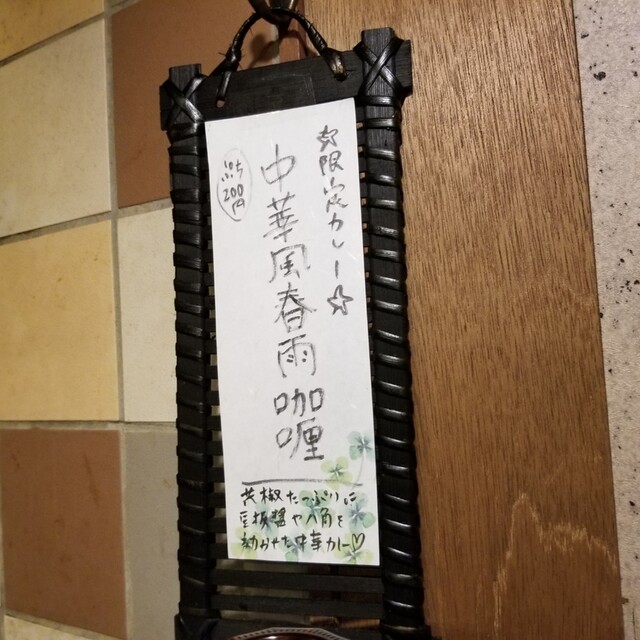 ☆限定カレー☆
中華風春雨咖喱
ぷらす
200円
花椒たっぷりに
豆板醤や八角を
効かせた中華カレー♡